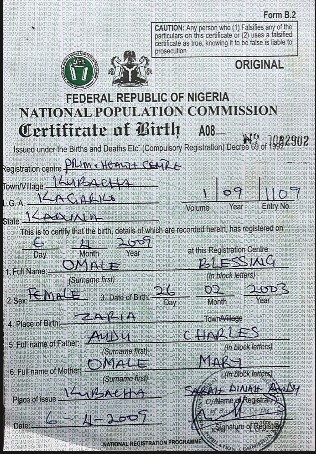 Form B.2
CAUTION: Any person who (1) Falsifies any of the
particulars on this certificate or (2) uses a falsified
certificate as true, knowing it to be false is liable to
prosecution
ORIGINAL
FEDERAL REPUBLIC OF NIGERIA
NATIONAL POPULATION COMMISSION
Certificate of Birth A08 No
Issued under the Births and Deaths Etc. (Compulsory Registration) Decree 69 of
Registration centre PRIM. HEALTH CENTRE
Town/Village KUBACHA
L.G.A. KAGARKO 1 09 1107
Volume Year Entry No.
State KADUNA
This is to certify that the birth, details of which are recorded herein, has registered on
6 4 2009
Day Month Year at this Registration Centre
1. Full Name: OMALE BLESSING
(Surname first) (In block letters)
2. Sex: FEMALE 3. Date of Birth: 26 02 2003
Day Month Year
4. Place of Birth: ZARIA
Town/Village
5. Full name of Father: AUDU CHARLES
(Surname first) (In block letters)
6. Full name of Mother: OMALE MARY
(Surname first) (In block letters)
Place of Issue KUBACHA SARAH DINAH AUDU
Name of Registrar
Date: 6-4-2009 Signature of Registrar
NATIONAL REGISTRATION PROGRAMME